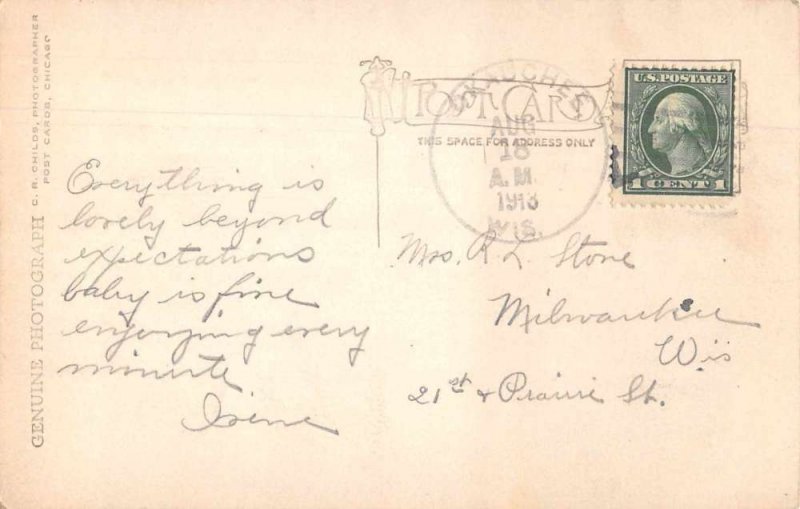 GENUINE PHOTOGRAPH C. R. CHILDS, PHOTOGRAPHER
POST CARDS, CHICAGO
POST CARD
THIS SPACE FOR ADDRESS ONLY
AUG
18
A.M.
1913
WIS.
U.S. POSTAGE
1 CENT 1
Everything is
lovely beyond
expectations
baby is fine
enjoying every
minute
Irene
Mrs. R L Stone
Milwaukee
Wis
21st & Prairie St.